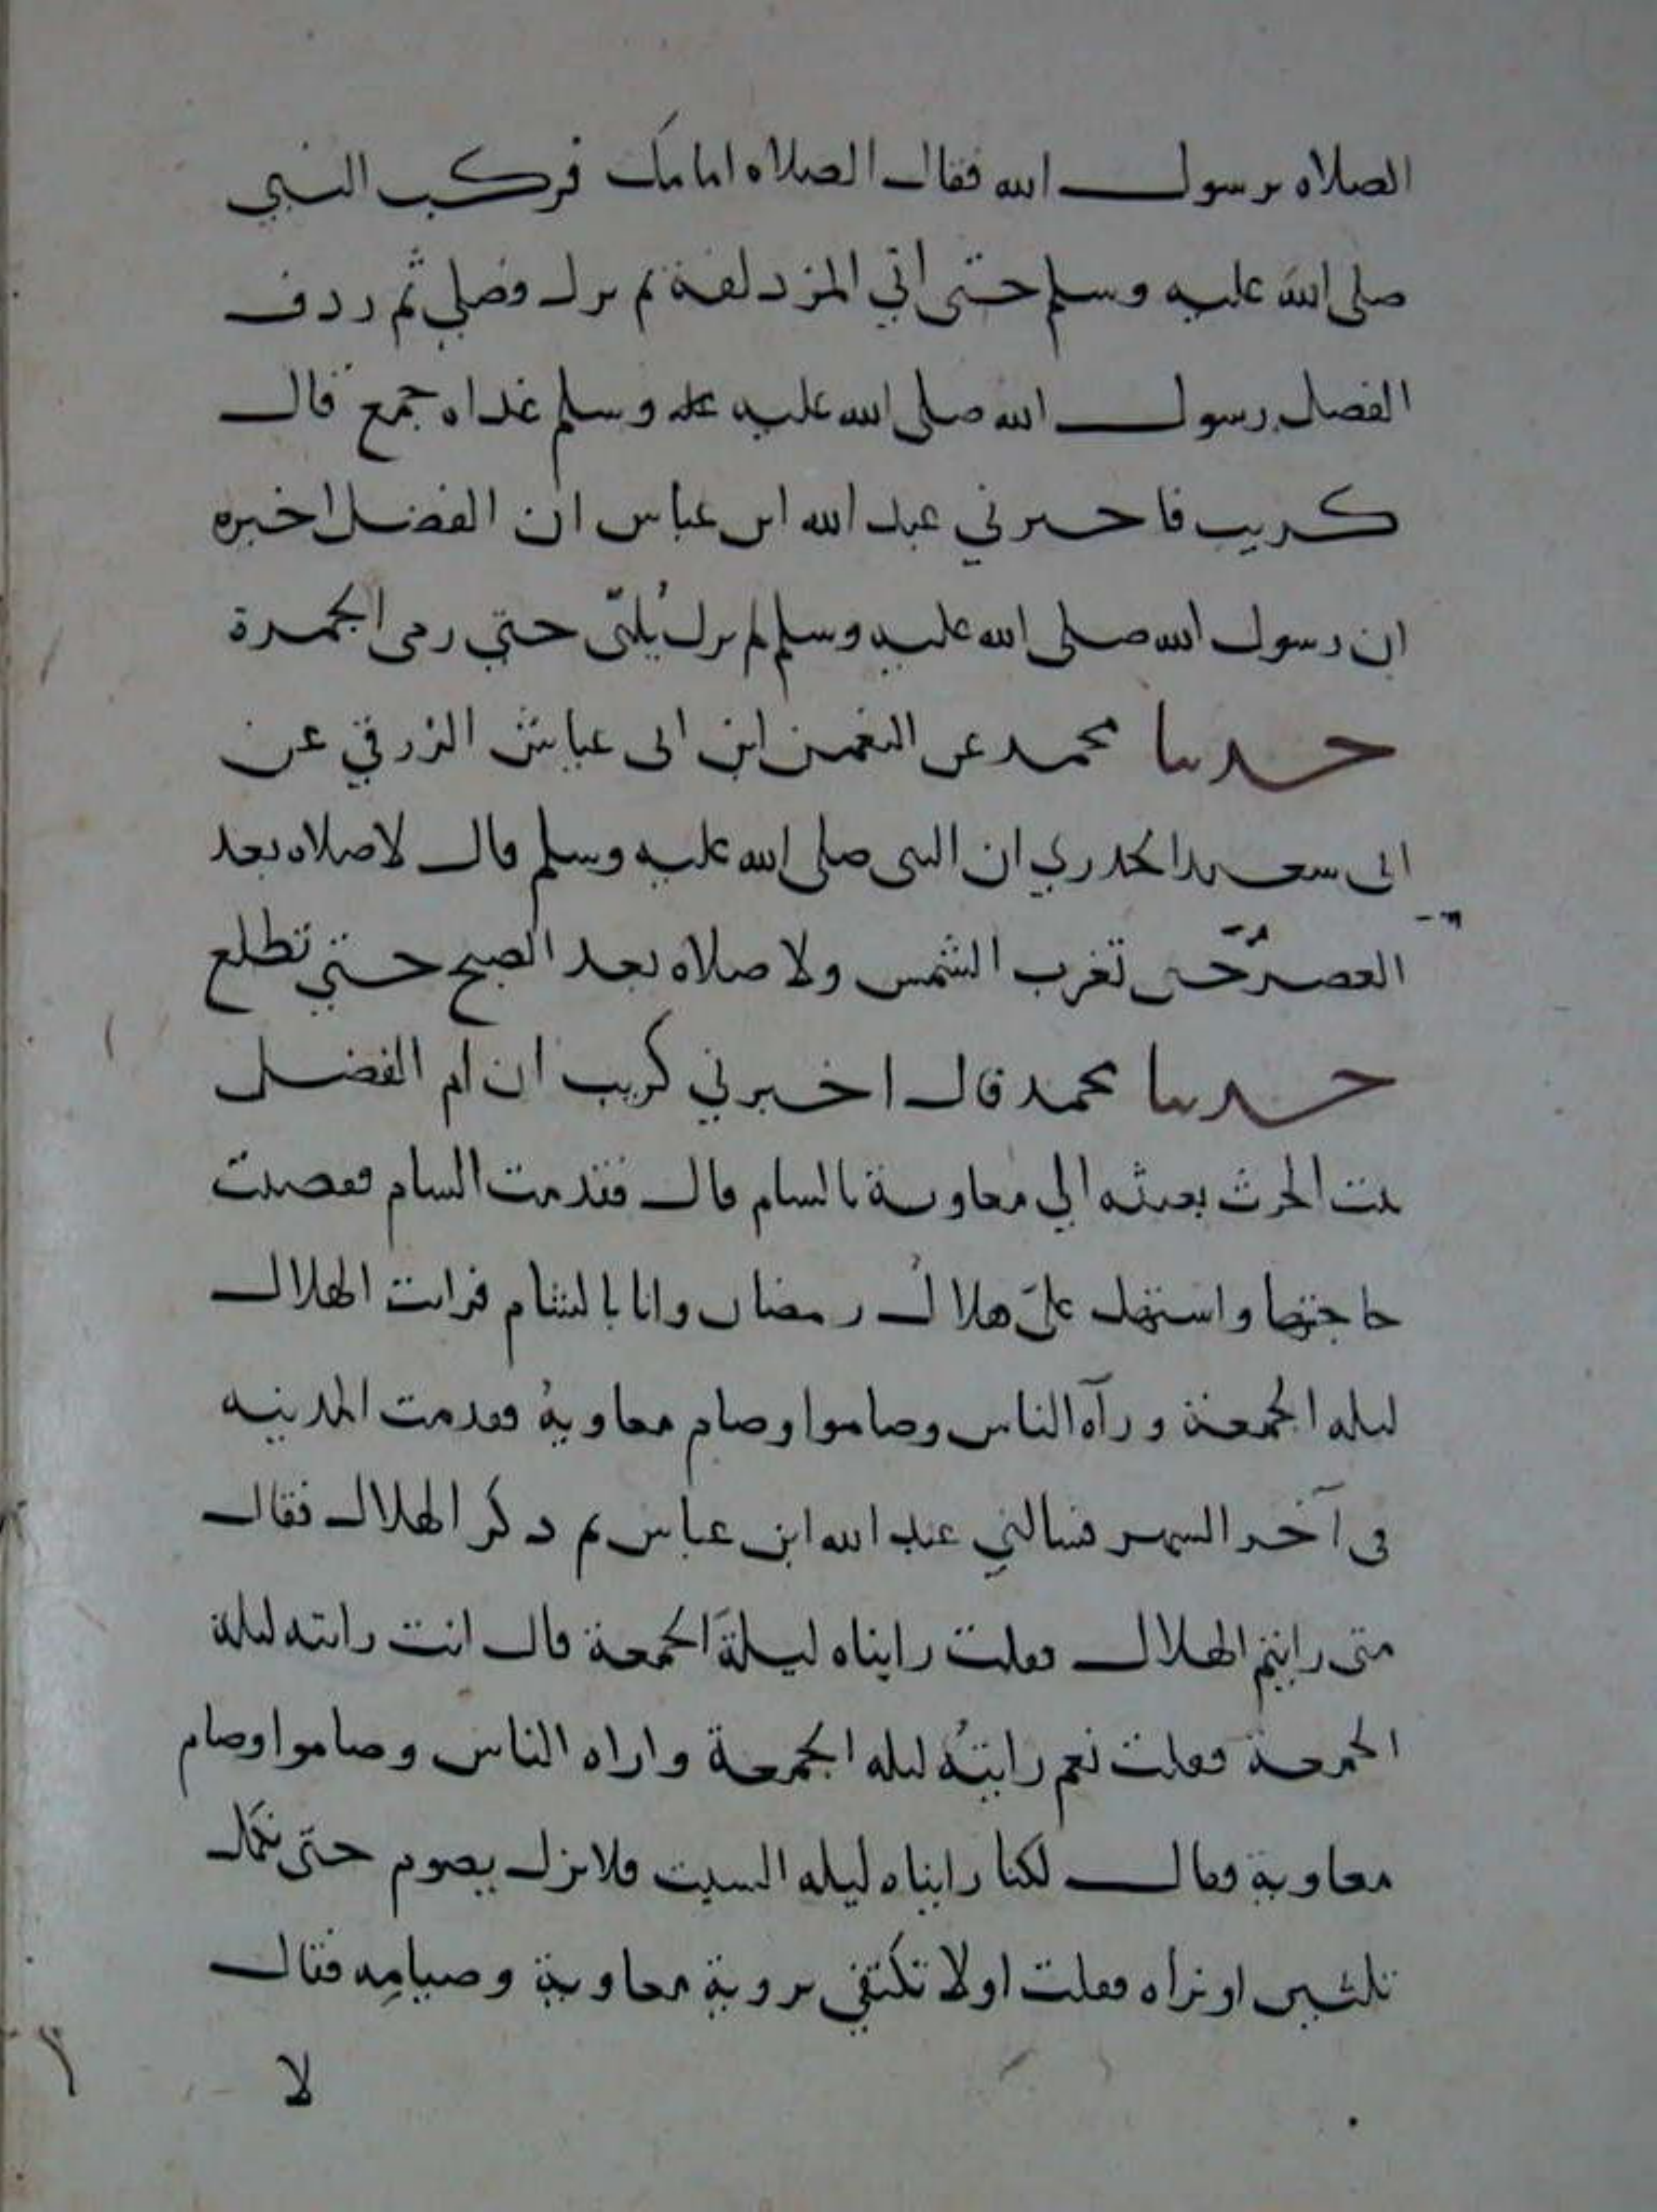 الصلاه يرسول الله فقال الصلاه امامك فركب النبي
صلى الله عليه وسلم حتى اتي المزدلفة ثم نزل فصلي ثم ردف
الفضل رسول الله صلى الله عليه وسلم غداه جمع قال
كريب فاخبرني عبد الله ابن عباس ان الفضل اخبره
ان رسول الله صلى الله عليه وسلم لم يزل يُلبّى حتي رمى الجمرة
حدثنا محمد عن النعمن ابن ابى عياش الزرقي عن
ابى سعيد الخدري ان النبى صلى الله عليه وسلم قال لا صلاه بعد
العصر حتى تغرب الشمس ولا صلاه بعد الصبح حتي تطلع
حدثنا محمد قال اخبرني كريب ان ام الفضل
بنت الحرث بعثته الي معاوية بالشام قال فقدمت الشام فقضيت
حاجتها واستهل علىّ هلال رمضان وانا بالشام فرايت الهلال
ليله الجمعة ورآه الناس وصاموا وصام معاوية فقدمت المدينه
فى آخر الشهر فسالني عبد الله ابن عباس ثم ذكر الهلال فقال
متى رايتم الهلال فقلت رايناه ليلة الجمعة قال انت رايته ليلة
الجمعة فقلت نعم رايتُه ليله الجمعة واراه الناس وصاموا وصام
معاوية فقال لكنا رايناه ليله السبت فلا نزل نصوم حتى نكمل
ثلثين او نراه فقلت اولا تكتفي بروية معاوية وصيامِه فقال
لا